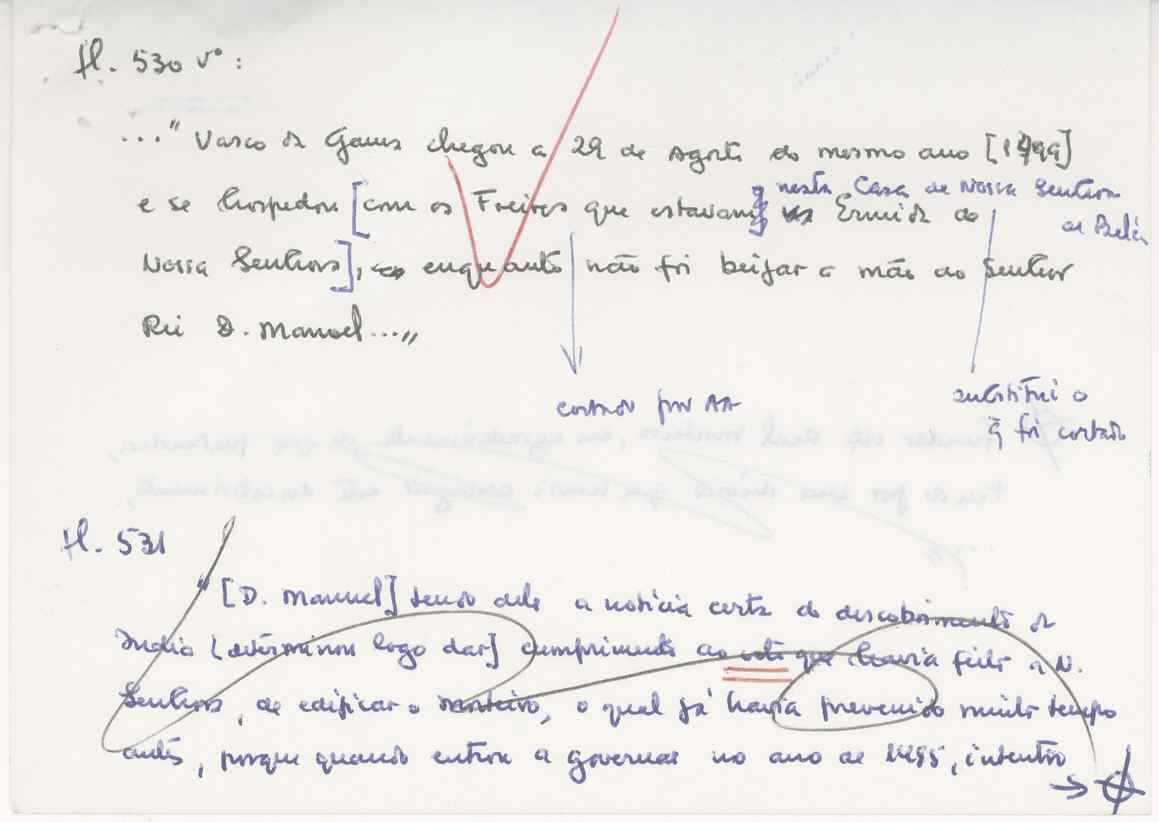 fl. 530 vº:
..." Vasco da Gama chegou a 29 de Agosto do mesmo ano [1499]
nesta Casa de Nossa Senhora
de Belém
e se hospedou [com os Freires que estavam Ermida de
Nossa Senhora], enquanto não foi beijar a mão ao Senhor
Rei D. Manoel..."
cortado por AA
substitui o
q̃ foi cortado
fl. 531
"[D. Manuel] tendo dele a noticia certa do descobrimento da
India [determinou logo dar] cumprimento ao voto que havia feito a N.
Senhora, de edificar o mosteiro, o qual já havia prevenido muito tempo
antes, porque quando entrou a governar no ano de 1495, intentou
→